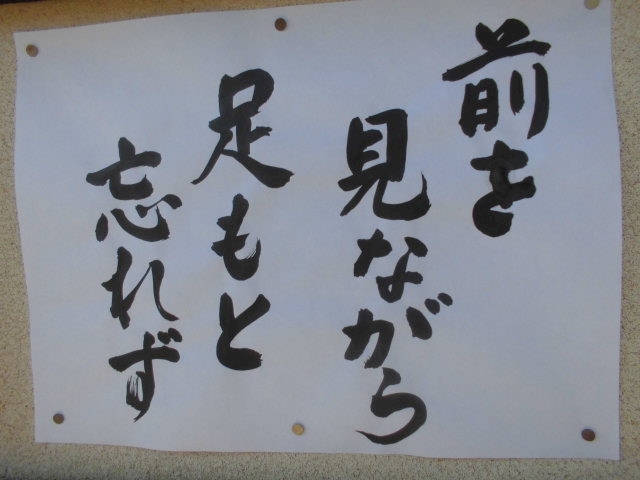 前を
見ながら
足もと
忘れず